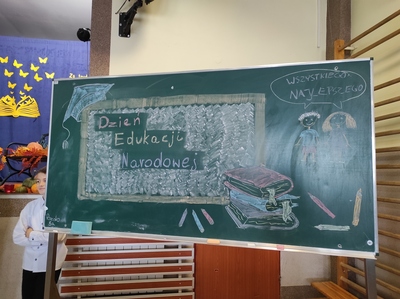 Dzień
Edukacji
Narodowej
WSZYSTKIEGO
NAJLEPSZEGO